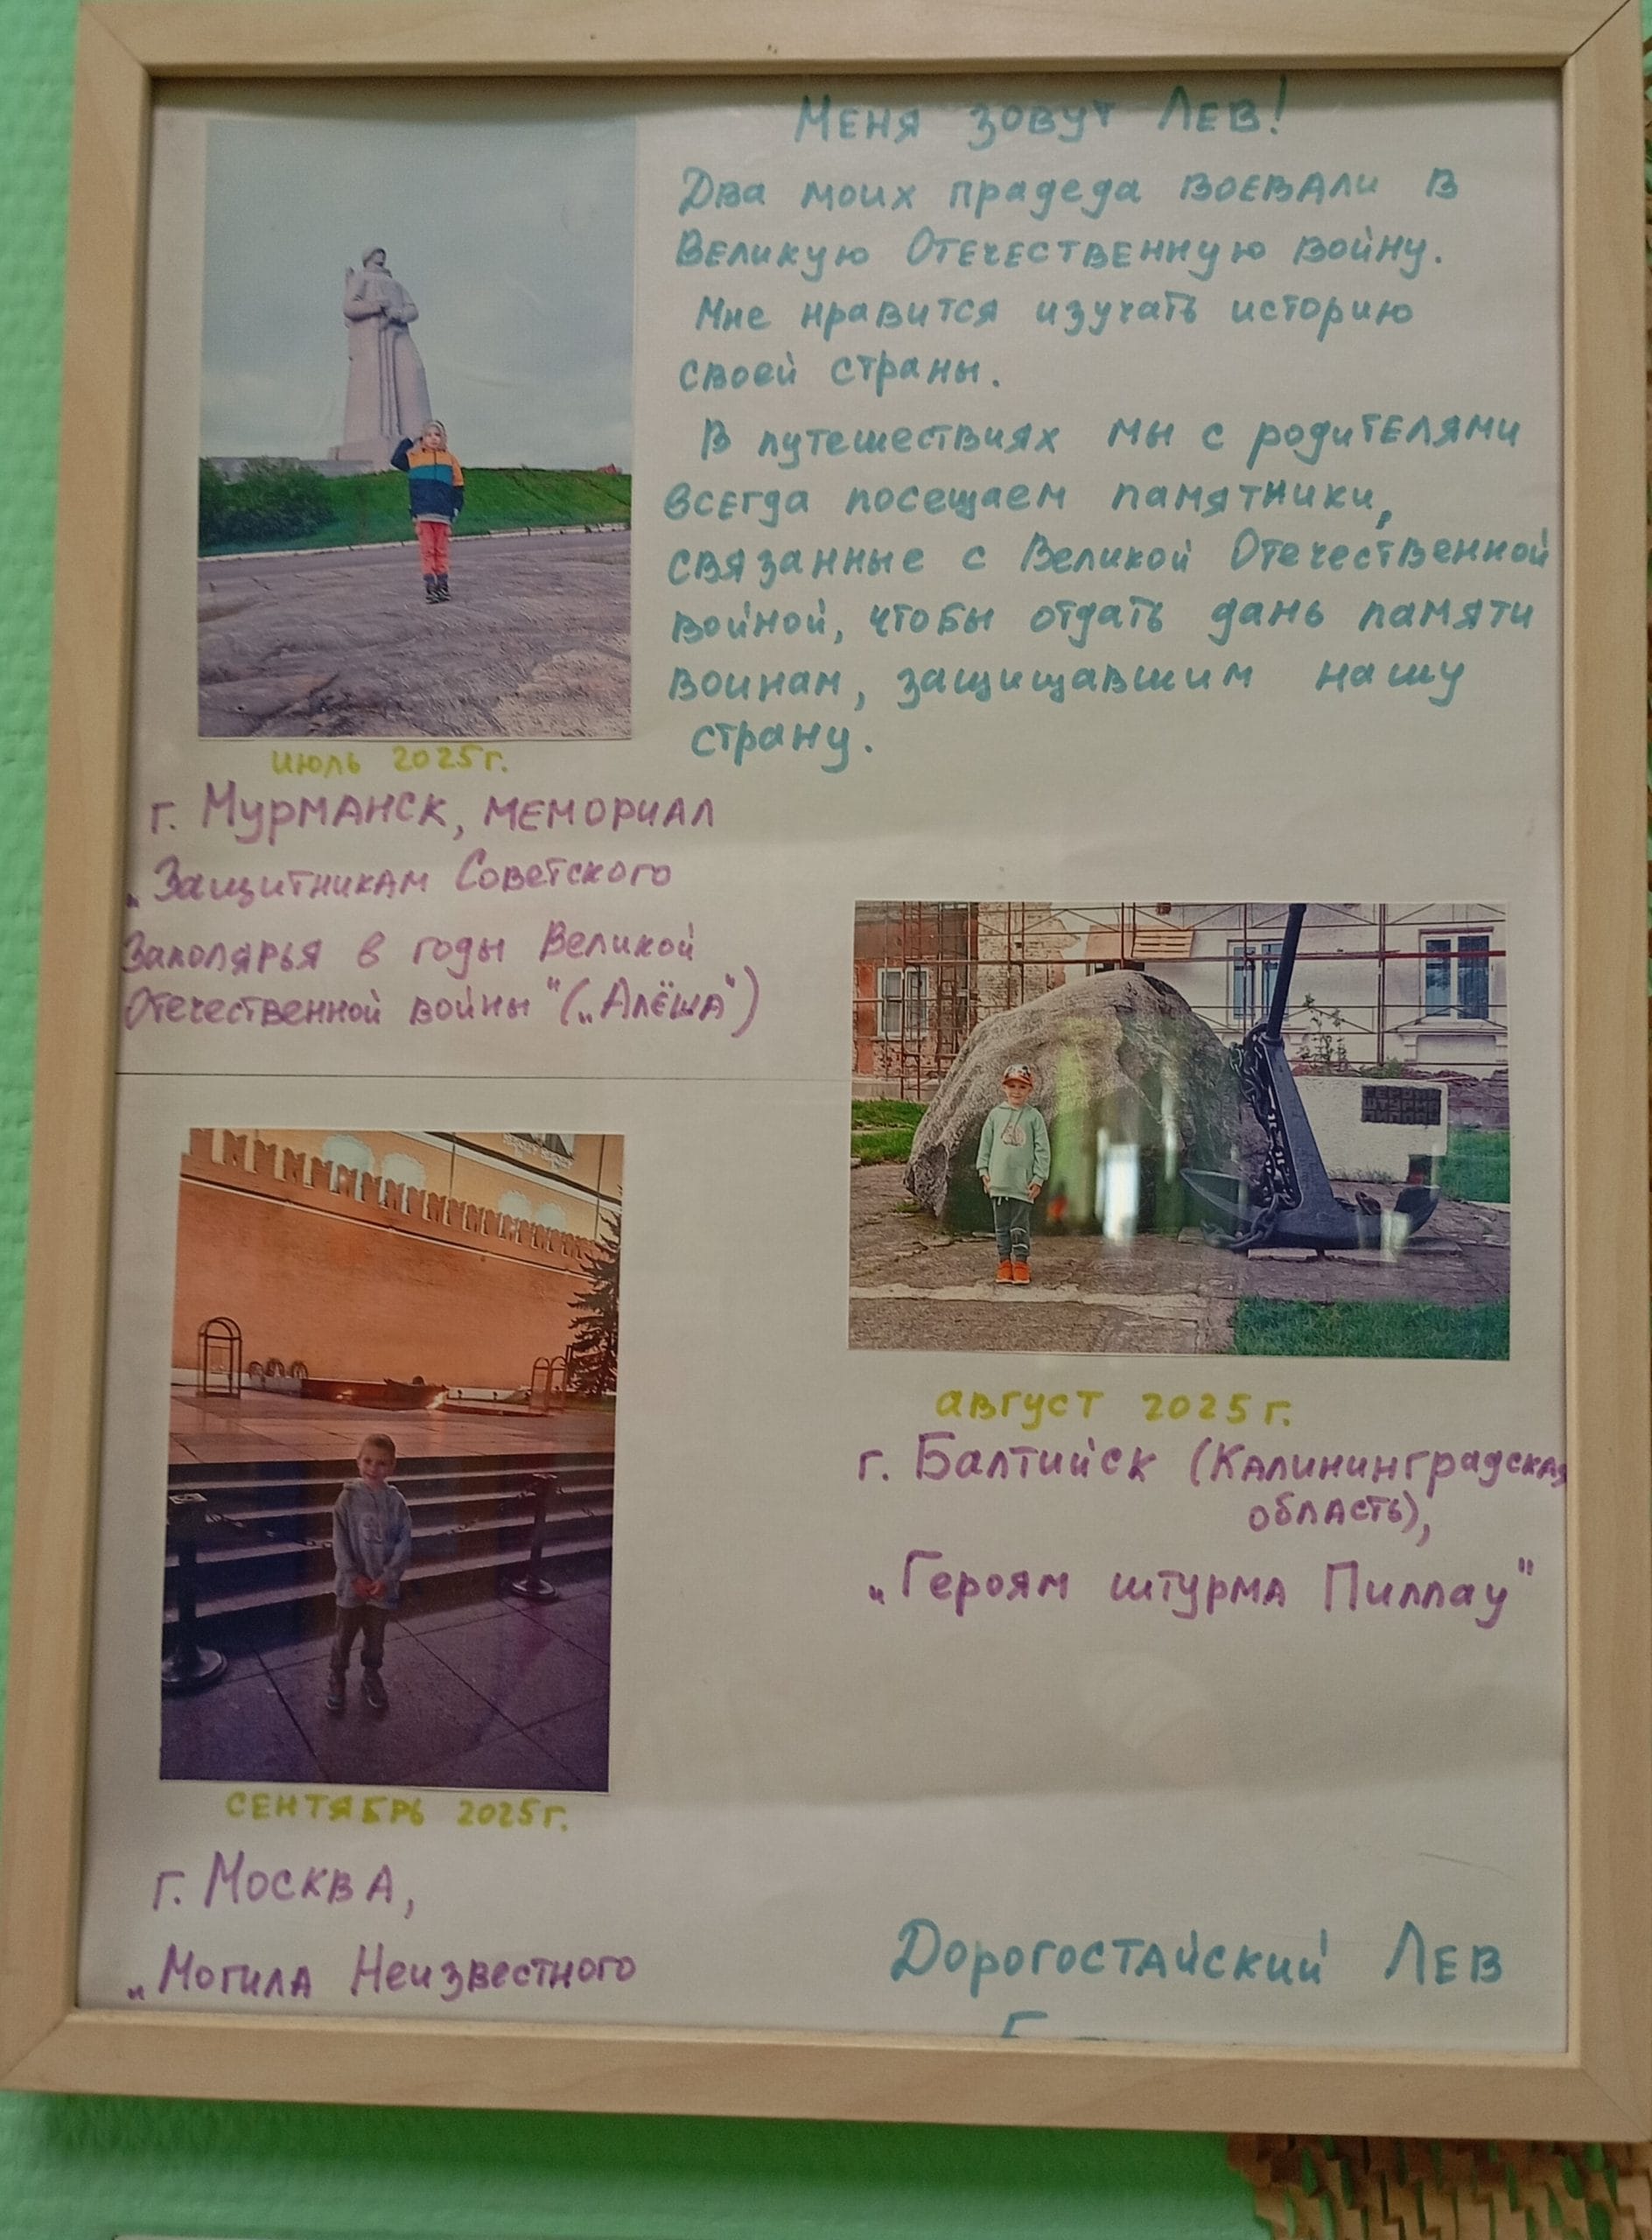 Меня зовут Лев!
Два моих прадеда воевали в
Великую Отечественную войну.
Мне нравится изучать историю
своей страны.
В путешествиях мы с родителями
всегда посещаем памятники,
связанные с Великой Отечественной
войной, чтобы отдать дань памяти
воинам, защищавшим нашу
страну.
июль 2025г.
г. Мурманск, мемориал
„Защитникам Советского
Заполярья в годы Великой
Отечественной войны" („Алёша")
август 2025г.
г. Балтийск (Калининградская
область),
„Героям штурма Пиллау"
сентябрь 2025г.
г. Москва,
„Могила Неизвестного
Дорогостайский Лев